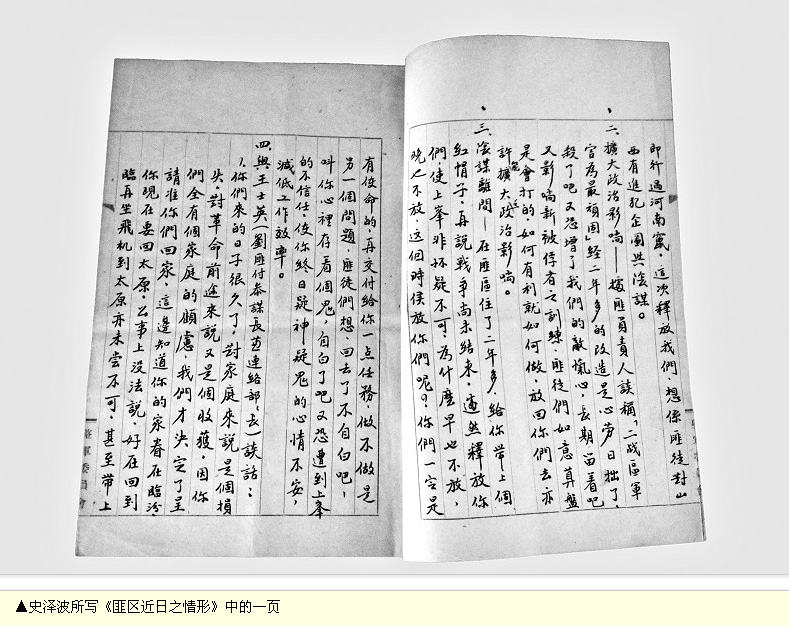 即行過河南竄、這次釋放我們、想係匪徒對山
西有進犯企圖與陰謀。
二、擴大政治影响——據匪負責人談稱「二战區軍
官為最頑固」經二年多的改造是心劳日拙了、
殺了吧又恐增了我們的敵愾心、長期留着吧
又影响新被俘者之訓練、匪徒們如意算盤
是會打的、如何有利就如何做、放回你們去亦
許能擴大政治影响。
三、陰謀離間——在匪區住了二年多、給你帶上個
紅帽子、再說戰爭尚未結束、遽然釋放你
們使上峯非怀疑不可、為什麼早也不放、
晚也不放、這個時候放你們呢？你們一定是
有使命的、再交付給你一点任務、做不做是
另一個問題、匪徒們想、回去了不自白吧！
叫你心裡存着個鬼、自白了吧又恐遭到上峯
的不信任、使你終日疑神疑鬼的心情不安，
減低工作效率。
四、與王士英(劉匪付參謀長兼連絡部長)談話：
「你們來的日子很久了、对家庭來說是個損
失、对革命前途來說又是個收獲、因你
們全有個家庭的顧慮、我們才決定了呈
請准你們回家、這邊知道你的家眷在臨汾、
你現在要回太原、公事上没法說、好在回到
臨再坐飛机到太原亦未尝不可、甚至帶上
▲史泽波所写《匪区近日之情形》中的一页